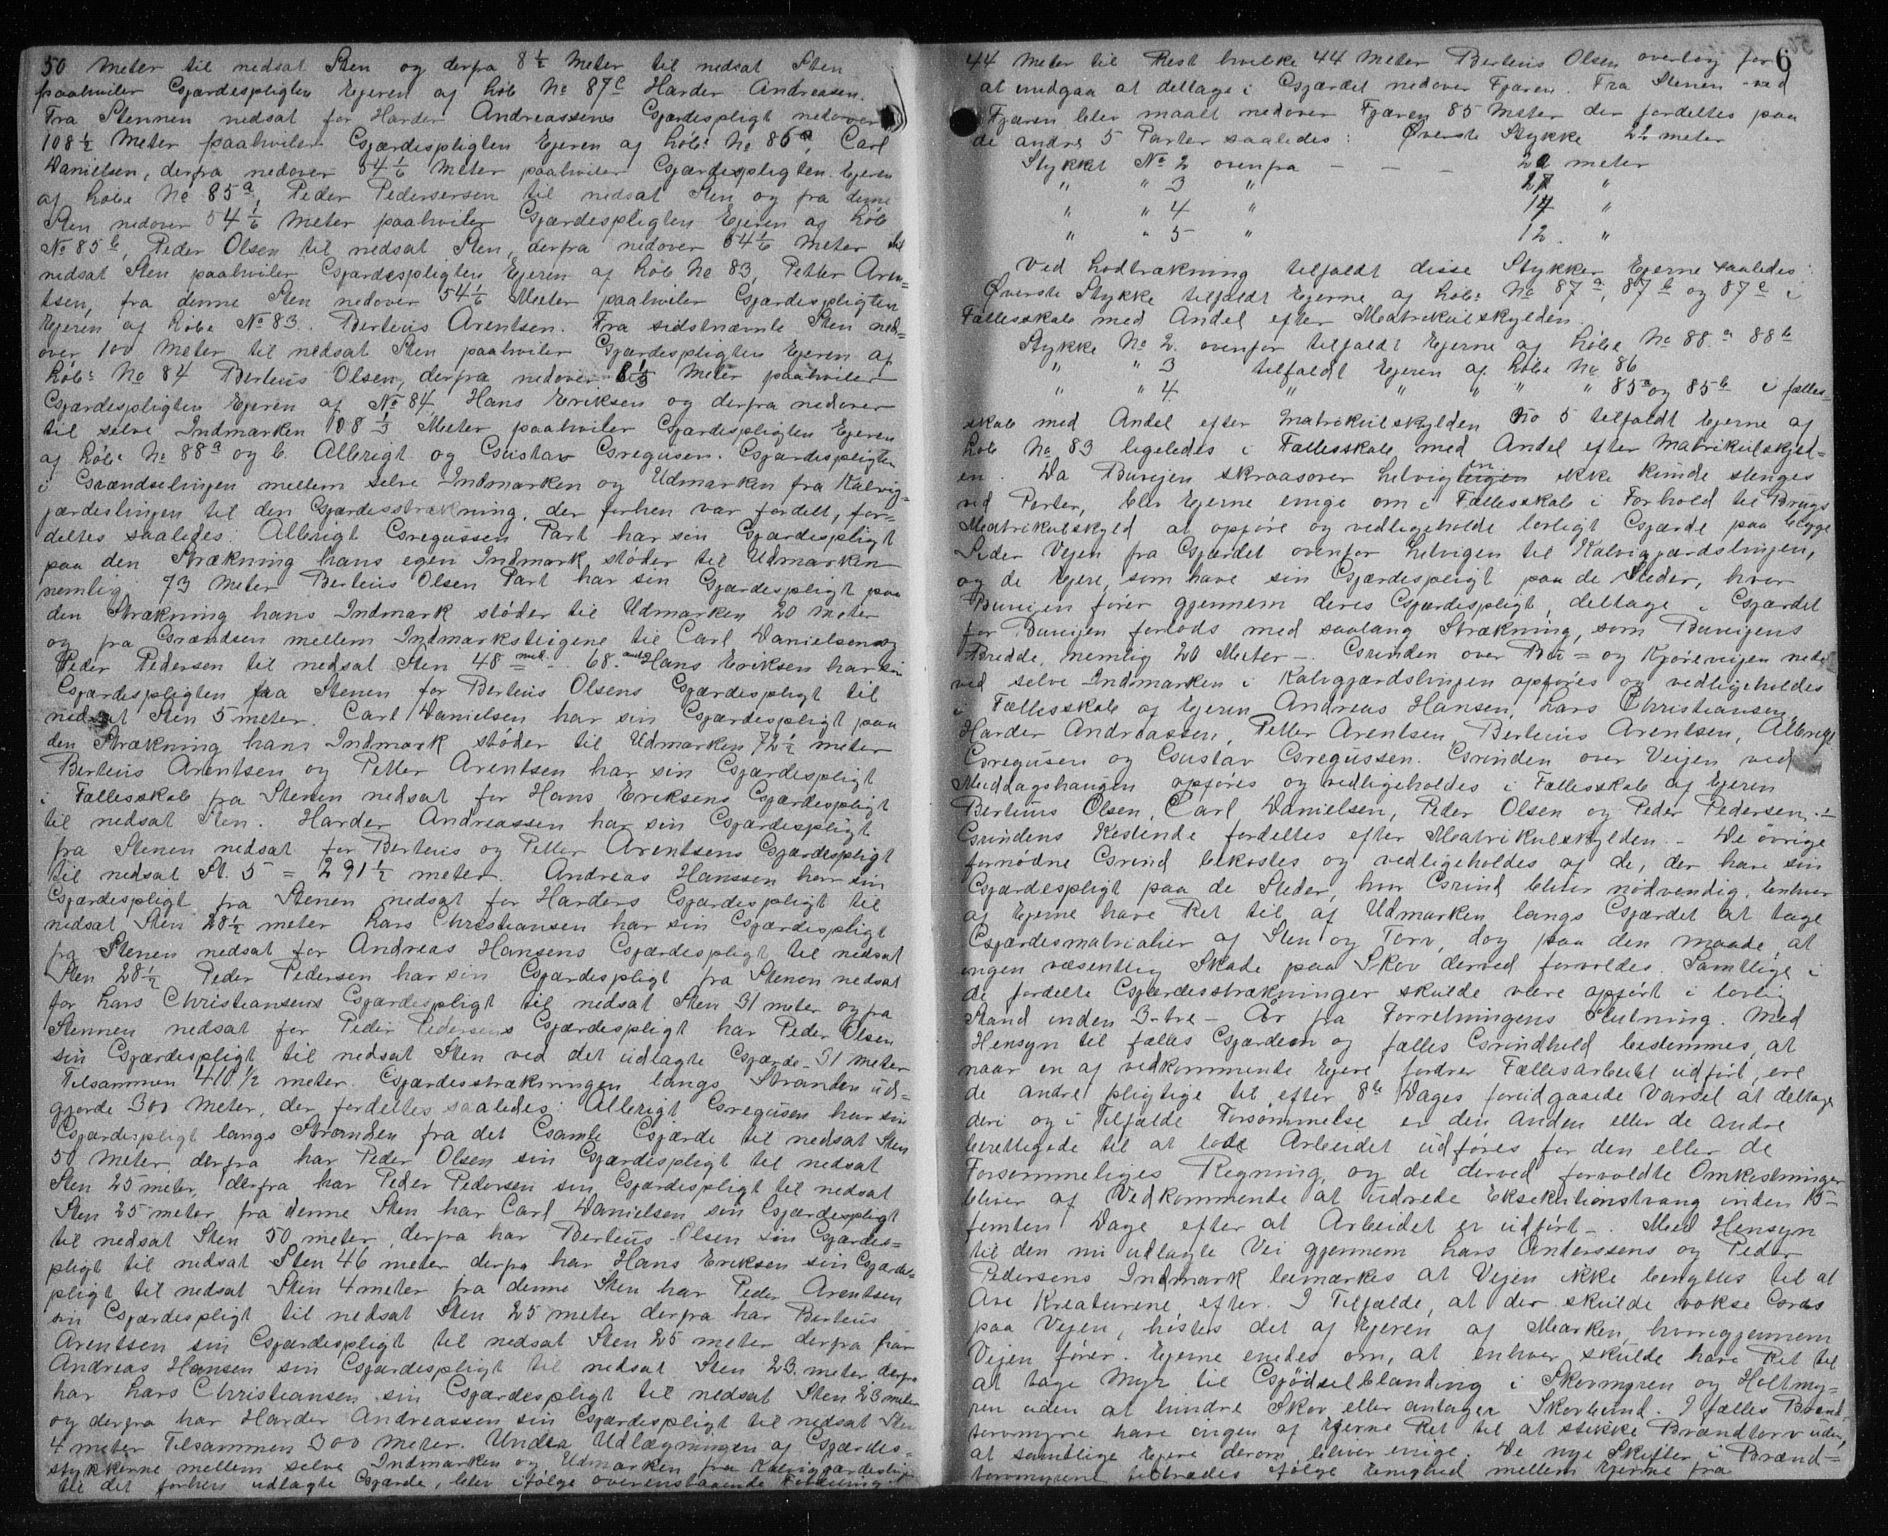 50 Meter til nedsat Sten og derfra 8½ Meter til nedsat Sten
paahviler Gjærdespligten Ejeren af Løb No 87c Harder Andreasen.
Fra Stennen nedsat for Harder Andreassens Gjærdespligt nedover
108½ Meter paahviler Gjærdespligten Ejeren af Løb: No 86a, Carl
Danielsen, derfra nedover 54⅙ Meter paahviler Gjærdespligten Ejeren
af Løbe No 85a, Peder Pedersersen til nedsat Sten og fra denne
Sten nedover 54⅙ Meter paahviler Gjærdespligten Ejeren af Løb
No 85b, Peder Olsen til nedsat Sten, derfra nedover 54⅙ Meter til
nedsat Sten paahviler Gjærdespligten Ejeren af Løb No 83, Petter Aren-
tsen, fra denne Sten nedover 54⅙ Meter paahviler Gjærdespligten
Ejeren af Løbe No 83. Berteus Arentsen. Fra sidstnævnte Sten ned=
over 100 Meter til nedsat Sten paahviler Gjærdespligten Ejeren af
Løb: No 84 Berteus Olsen, derfra nedover 8⅓ Meter paahviler
Gjærdespligten Ejeren af No 84, Hans Eriksen og derfra nedover
til selve Indmarken 108⅓ Meter paahviler Gjærdespligten Ejeren
af Løb: No 88a og b. Albrigt og Gustav Gregusen. Gjærdespligten
i Grændselinjen mellem selve Indmarken og Udmarken fra Kalvig-
jærdeslinjen til den Gjærdesstrækning, der forhen var fordelt, for=
deltes saaledes: Albrigt Gregussen Part har sin Gjærdespligt
paa den Strækning hans egen Indmark støder til Udmarken
nemlig 73 Meter Berteus Olsen Part har sin Gjærdespligt paa
den Strækning hans Indmark støder til Udmarken 20 Meter
og fra Grændsen mellem Indmarksteigene til Carl Danielsen og
Peder Pedersen til nedsat Sten 48 met. 68. Hans Eriksen har sin
Gjærdespligten fra Stenen for Berteus Olsens Gjærdespligt til
nedsat Sten 5 meter. Carl Danielsen har sin Gjærdespligt paa
den Strækning hans Indmark støder til Udmarken 72½ meter
Berteus Arentsen og Petter Arentsen har sin Gjærdespligt
i Fællesskab fra Stenen nedsat for Hans Eriksens Gjærdespligt
til nedsat Sten. Harder Andreassen har sin Gjærdespligt
fra Stenen nedsat for Berteus og Petter Arentsens Gjærdespligt
til nedsat St. 5 = 291½ meter. Andreas Hanssen har sin
Gjærdespligt fra Stenen nedsat for Harders Gjærdespligt til
nedsat Sten 28½ meter Lars Christiansen har sin Gjærdespligt
fra Stenen nedsat for Andreas Hansens Gjærdespligt til nedsat
Sten 28½ Peder Pedersen har sin Gjærdespligt fra Stenen nedsat
for Lars Christiansens Gjærdespligt til nedsat Sten 31 meter og fra
Stennen nedsat for Peder Pedersens Gjærdespligt har Peder Olsen
sin Gjærdespligt til nedsat Sten ved det udlagte Gjærde - 31 meter
Tilsammen 410½ meter. Gjærdesstrækningen langs Stranden ud=
gjorde 300 Meter, der fordeltes saaledes: Albrigt Gregusen har sin
Gjærdespligt langs Stranden fra det Gamle Gjærde til nedsat Sten
50 Meter, derfra har Peder Olsen sin Gjærdespligt til nedsat
Sten 25 meter, derfra har Peder Pedersen sin Gjærdespligt til nedsat
Sten 25 meter, fra denne Sten har Carl Danielsen sin Gjærdespligt
til nedsat Sten 50 meter, derfra har Berteus Olsen sin Gjærdes=
pligt til nedsat Sten 46 meter derfra har Hans Eriksen sin Gjærdes-
pligt til nedsat Sten 4 meter fra denne Sten har Peder Arentsen
sin Gjærdespligt til nedsat Sten 25 meter derfra har Berteus
Arentsen sin Gjærdespligt til nedsat Sten 25 meter derfra har
Andreas Hansen sin Gjærdespligt til nedsat Sten 23 meter, derfra
har Lars Christiansen sin Gjærdespligt til nedsat Sten 23 meter
og derfra har Harder Andreassen sin Gjærdespligt til nedsat Sten
4 meter Tilsammen 300 meter. Under Udlægningen af Gjærdes-
stykkerne mellem selve Indmarken og Udmarken fra Kalviggjærdeslinj
til det forhen udlagte Gjærde, blev ifølge overenstaaende Fordeling
6
44 Meter til Rest hvilke 44 Meter Berteus Olsen overtog for
at undgaa at deltage i Gjærdet nedover Fjæren. Fra Stenen ved
Fjæren blev maalt nedover Fjæren 85 Meter der fordeltes paa
de andre 5 Parter saaledes: Øverste Stykke 21 meter
Stykket No 2 ovenfra - - - 20 meter
" " 3 " 21 "
" " 4 " 14 "
" " 5 " 12. "
Ved Lodtrækning tilfaldt disse Stykker Ejerne saaledes:
Øverste Stykke tilfaldt Ejerne af Løb: No 87a, 87b og 87c i
Fællesskab med Andel efter Matrikulskylden.
Stykke No 2. ovenfor tilfaldt Ejerne af Løbe No 88.a 88b
" " 3 tilfaldt Ejeren af Løbe No 86
" " 4 " " " " " 85a og 85b i fælles-
skab med Andel efter Matrikulskylden No 5 tilfaldt Ejerne af
Løb No 83 ligeledes i Fællesskab med Andel efter Matrikulskyld=
en. Da Buvejen skraasover Lelvigteigen ikke kunde stenges
ved Porter, blev Ejerne enige om i Fællesskab i Forhold til Brugs
Matrikulskyld at opføre og vedligeholde lovligt Gjærde paa begge
Sider Vejen fra Gjærdet ovenfor Lelvigen til Kalvigjærdslinjen,
og de Ejere, som have sin Gjærdespligt paa de Steder, hvor
Buvejen fører gjennem deres Gjærdespligt, deltage i Gjærdet
for Buvejen forlods med saalang Strækning, som Buvejens
Bredde, nemlig 20 Meter -. Grinden over Bu= og Kjøreveijen nede
ved selve Indmarken i Kalvgjærdslinjen opføres og vedligeholdes
i Fællesskab af Ejeren Andreas Hansen, Lars Christiansen,
Harder Andreassen, Petter Arentsen, Berteus Arentsen, Albrigt
Gregusen og Gustav Gregussen. Grinden over Veijen ved
Middagshaugen opføres og vedligeholdes i Fællesskab af Ejeren
Berteus Olsen, Carl Danielsen, Peder Olsen og Peder Pedersen. -
Grindens Kostende fordeltes efter Matrikulskylden. - De øvrige
fornødne Grind bekostes og vedligeholdes af de, der have sin
Gjærdespligt paa de Steder, hvor Grind bliver nødvendig, Enhver
af Ejerne have Ret til af Udmarken langs Gjærdet at tage
Gjærdesmatrialier af Sten og Torv, dog paa den maade, at
ingen væsentlig Skade paa Skov derved forvoldes. Samtlige i
de fordelte Gjærdesstrækninger skulde være opført i lovlig
Stand inden 3 - tre - Aar fra Forretningens Slutning. Med
Hensyn til fælles Gjærdeen og fælles Grindhold bestemmes, at
naar en af vedkommende Ejere fordrer Fællesarbeidet udført, ere
de andre pligtige til efter 8te Dages foruidgaaede Varsel at deltage
deri og i Tilfælde Forsømmelse er den Anden eller de Andre
berettigede til at lade Arbeidet udføres for den eller de
Forsømmeliges Regning, og de derved forvoldte Omkostninger
bliver af Vedkommende at udrede Eksekutionstvang inden 15-
femten Dage efter at Arbeidet er udført -. Med Hensyn
til den nu udlagte Vei gjennem Lars Anderssens og Peder
Pedersens Indmark bemærkes at Vejen ikke benyttes til at
Ave Kreaturene, efter. I Tilfælde, at der skulde vokse Græs
paa Vejen, høstes det af Ejeren af Marken, hvorigjennem
Vejen fører. Ejerne enedes om, at enhver skulde have Ret til
at tage Myr til Gjødselblanding i Skovmyren og Holtmy-
ren uden at hindre Skov eller antager Skovbund. I fælles Brænd-
torvmyre have ingen af Ejerne Ret til at stikke Brændtorv uden,
at samtlige Ejere derom bliver enige. De nye Skifter i Brænd-
torvmyrene tiltrædes ifølge Enighed mellem Ejerne fra